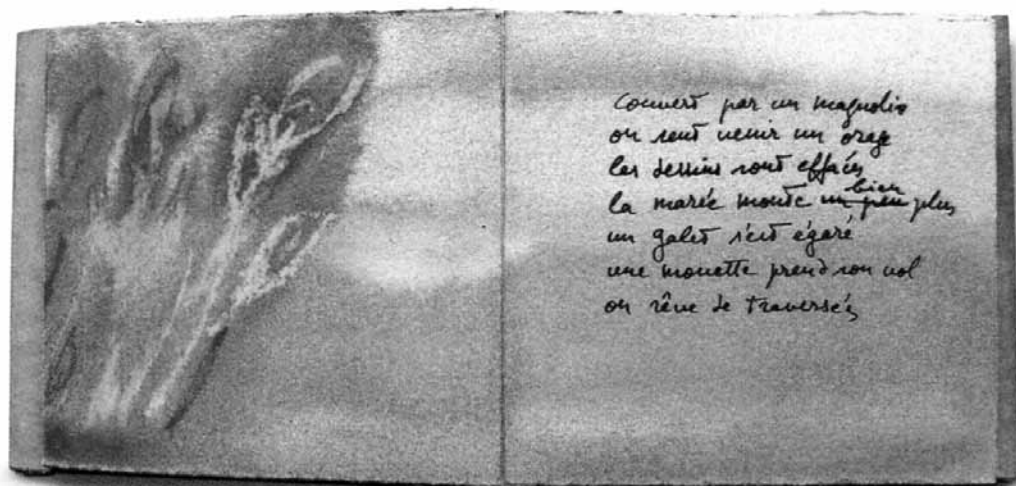 couvert par un magnolia
on sent venir un orage
les dessins sont effacés
la marée monte bien plus
un galet s'est égaré
une mouette prend son vol
on rêve de traversées